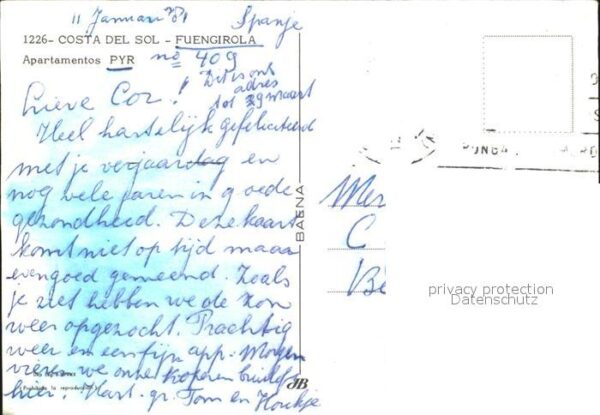 11 Januari '81 Spanje
1226- COSTA DEL SOL - FUENGIROLA
Apartamentos PYR no 409
Dit is ons
adres
tot 29 maart
Lieve Cor!
Heel hartelijk gefeliciteerd
met je verjaardag en
nog vele jaren in goede
gezondheid. Deze kaart
komt niet op tijd maar
evengoed gemeend. Zoals
je ziet hebben we de zon
weer opgezocht. Prachtig
weer en een fijn app. Morgen
vieren we onze koperen bruiloft
hier. Hart. gr. Tom en
BAENA
JB
Mer
C
Be
privacy protection
Datenschutz